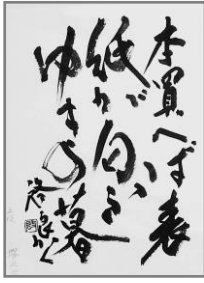 本買へば表
紙が匂ふ
ゆきの暮